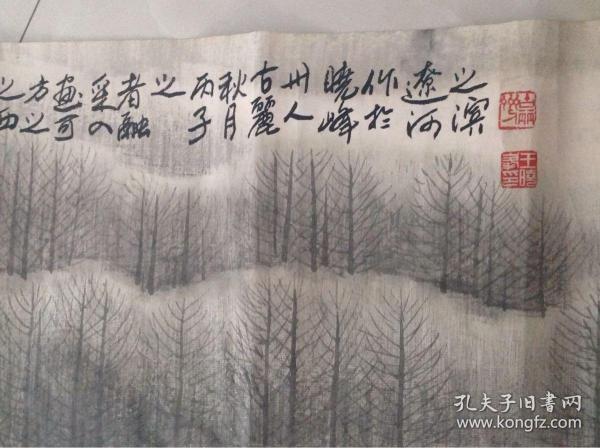 之西
方之
畫可
采入
者融
之
丙子
秋月
古麗
州人
曉峰
作於
遼河
之濱
王曉
峰印
孔夫子旧书网
www.kongfz.com